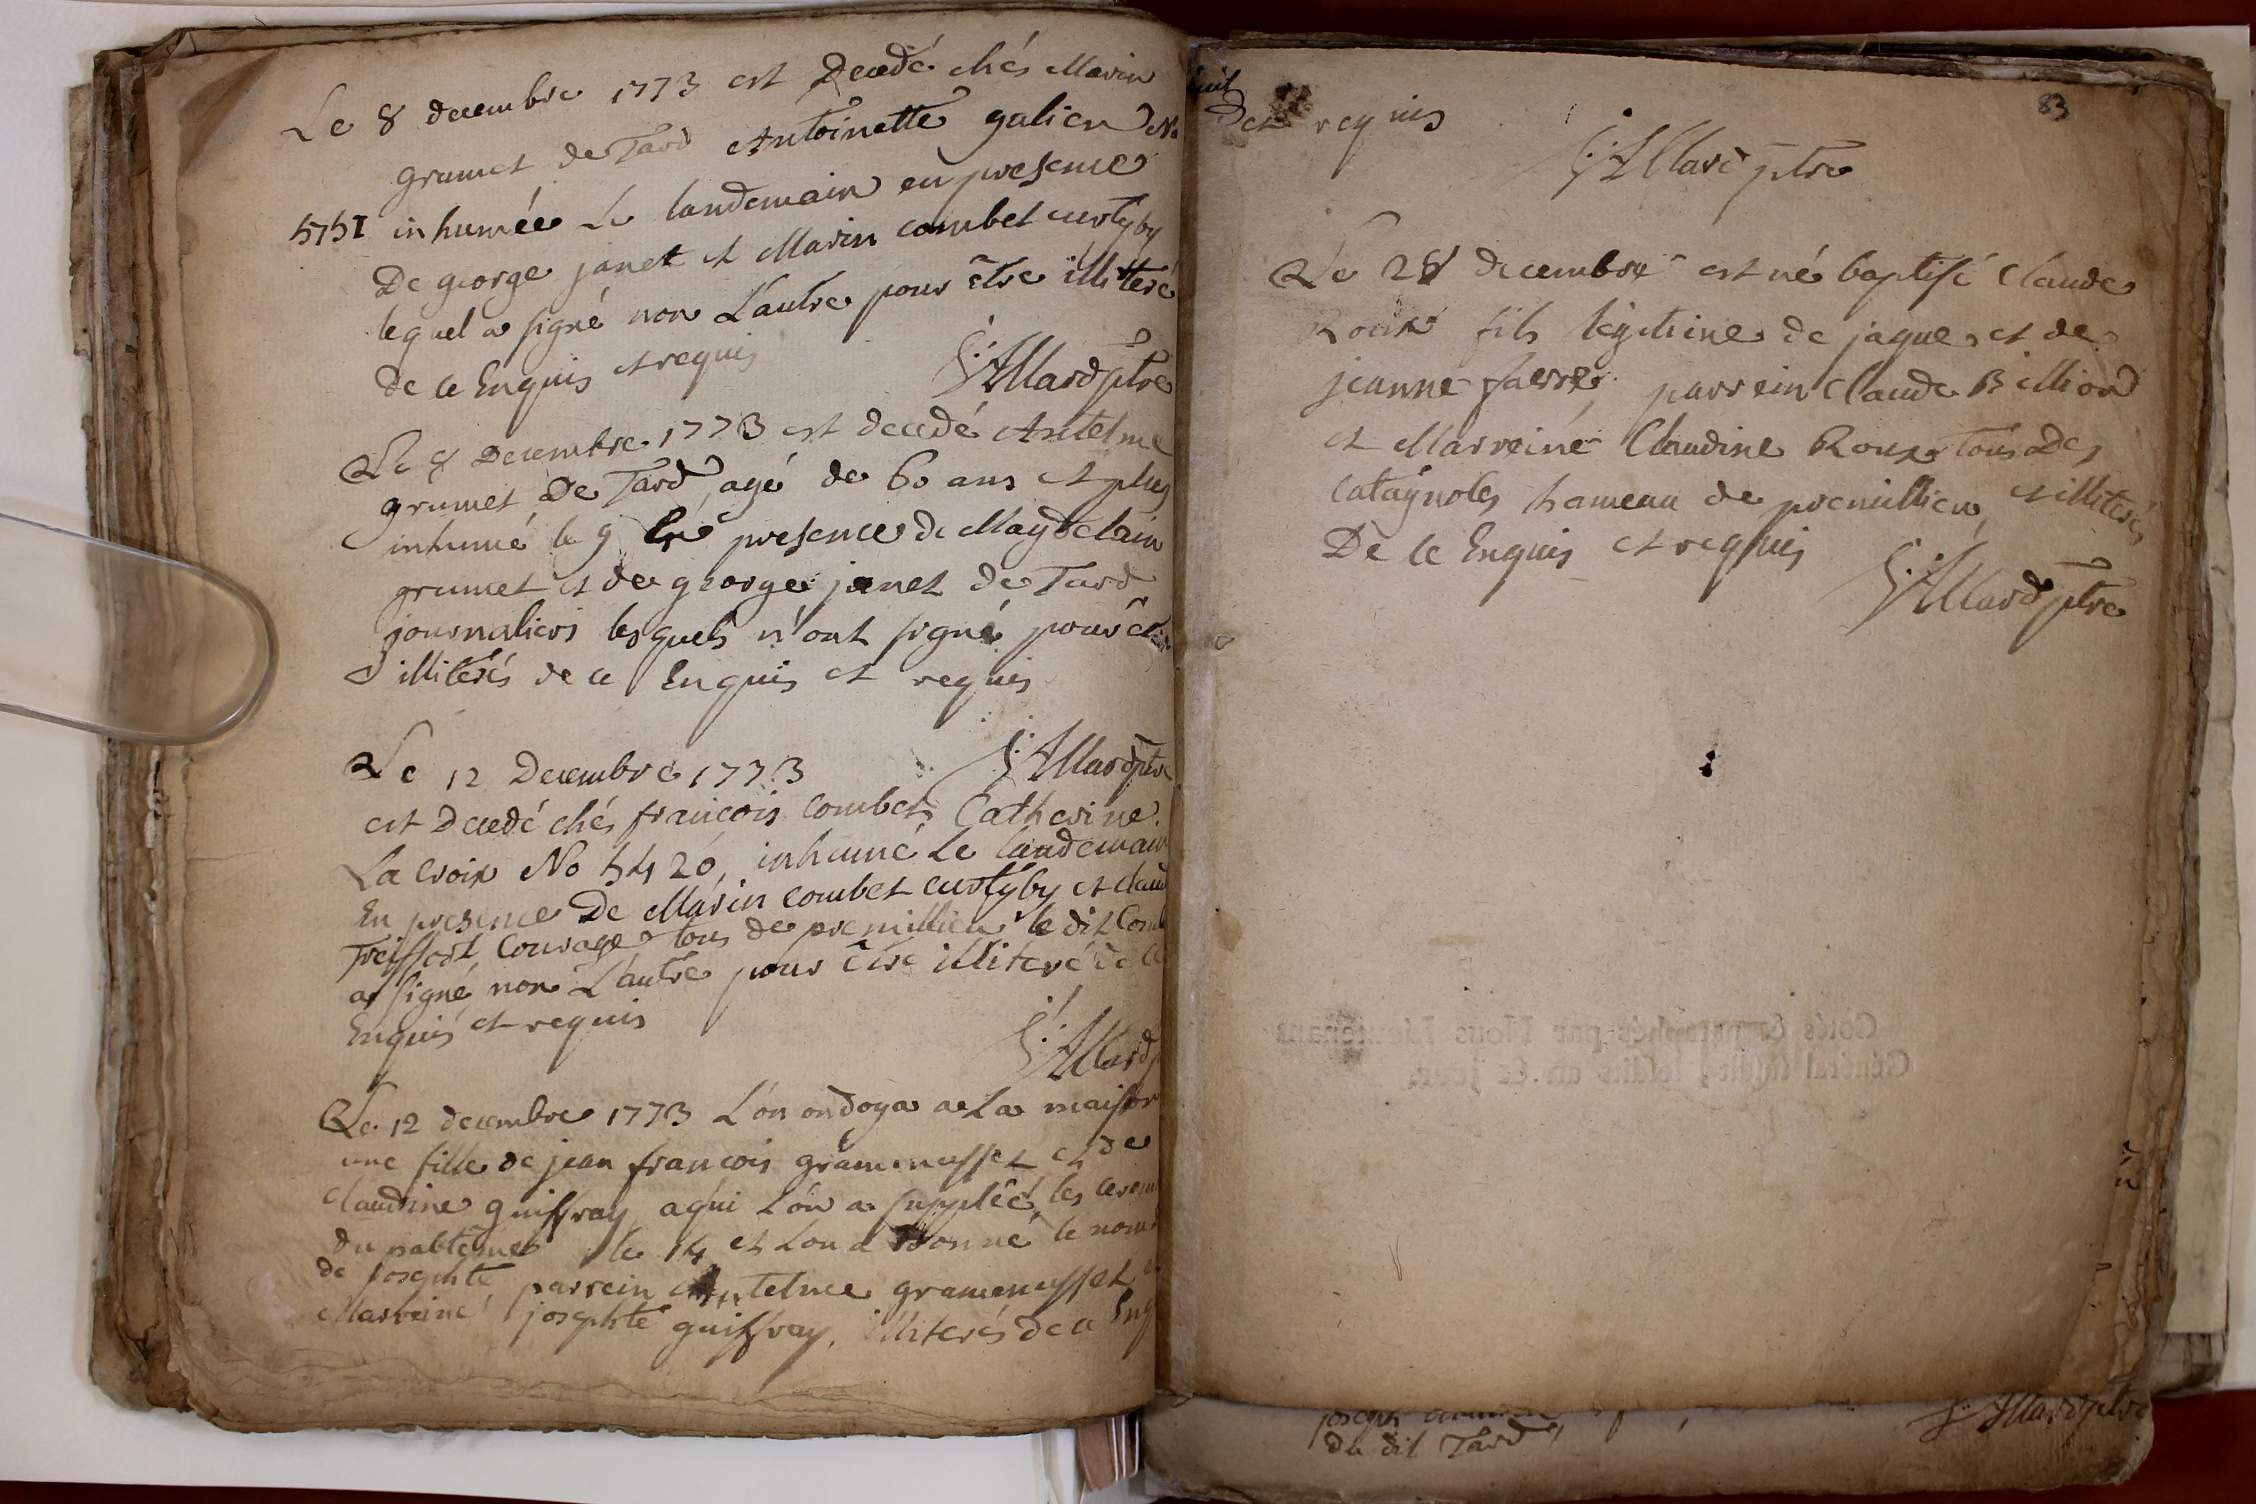 Le 8 decembre 1773 est Decedé chés Marin
grumet de Tard Antoinette galien No
5751 inhumée Le landemain en presence
De george janet et Marin combet curtyby
lequel a signé non L'autre pour être illiteré
de ce Enquis et requis
J: Allard ptre
Le 8 Decembre 1773 est decedé Antelme
grumet De Tard, agé de 60 ans et plus
inhumé le 9 En presence de Maydelain
grumet et de george janet de Tard
journaliers lesquels n'ont signé pour être
illiterés de ce Enquis et requis
J: Allard ptre
Le 12 Decembre 1773
est Decedé chés françois Combet Catherine
La croix No 5420, inhumé Le landemain
En presence De Marin combet curtyby et claud
Treffort Courage tous de premillieu le dit Com
a signé non L'autre pour être illiteré de ce
Enquis et requis
J: Allard p
Le 12 decembre 1773 L'on ondoya a La maison
une fille de jean françois gramusset et de
claudine guiffray a qui L'on a supplée les cerem
du pabteme le 14 et L'on a Donné le nom
de josephte parrein Antelme gramusset
Marreine josephte guiffray, illiterés de ce Enq
uit
Det requis
83
J: Allard ptre
Le 28 decembre est né baptisé Claude
Roux fils legitime de jaque et de
jeanne faerre parrein Claude Billiod
et Marreine Claudine Roux tous Des
Catagnoles hameau de premillieu, et illiterés
De ce Enquis et requis
J: Allard ptre
Cotés & paraphés par Nous Lieutenant
Général susdit, lesdits an & jour
joseph
du dit Tard,
J: Allard ptre